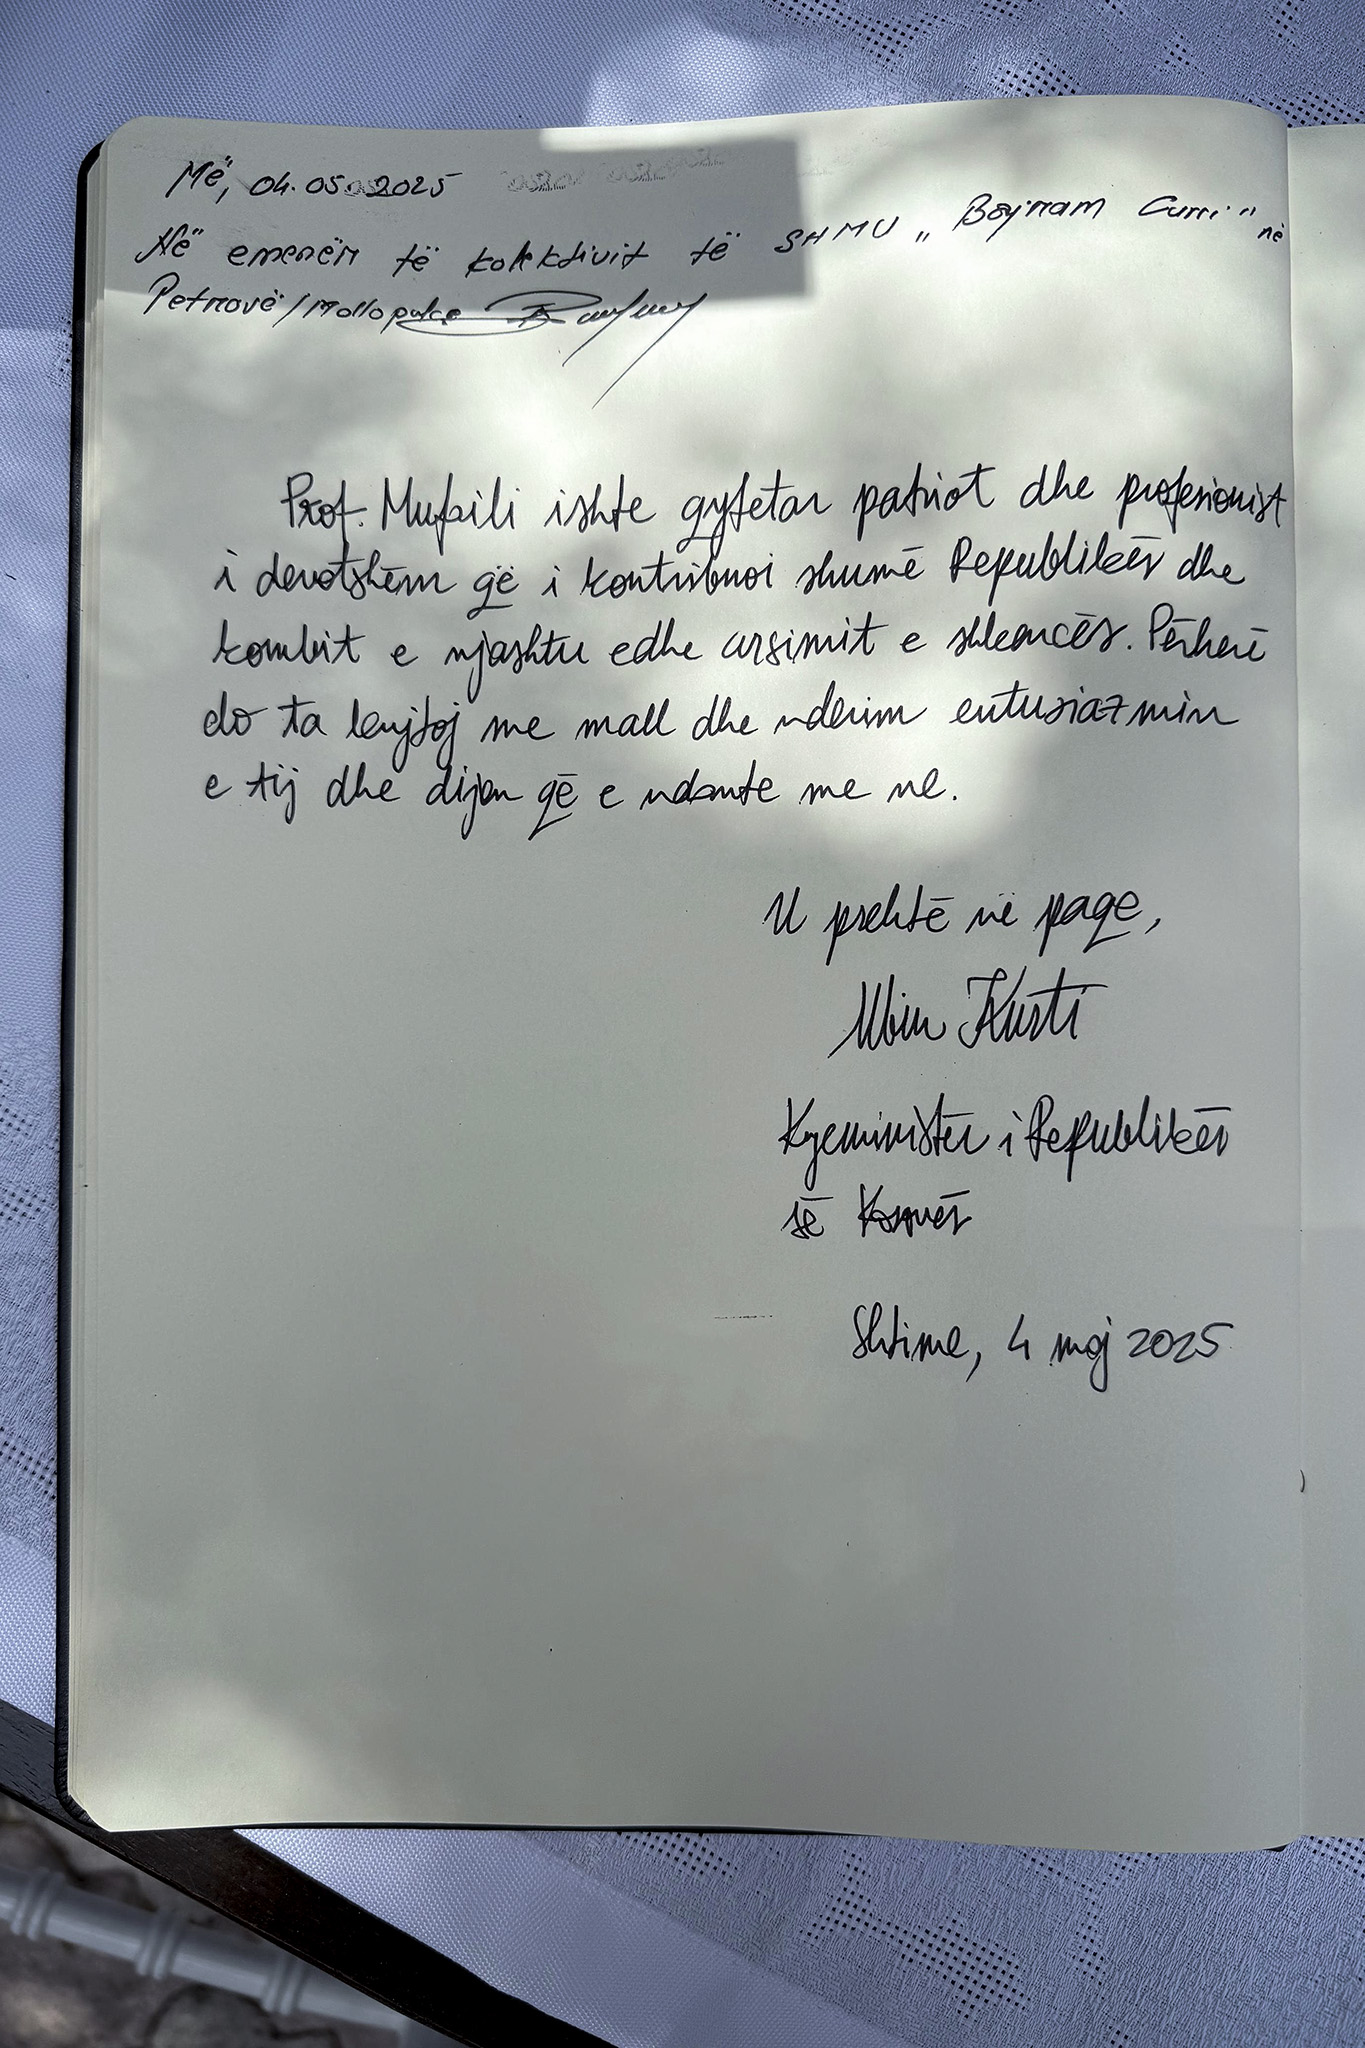 Më, 04.05.2025
Në emër të kolektivit të SHMU „Bajram Curri" në
Petrovë/Mollopolce
Prof. Mufili ishte qytetar patriot dhe profesionist
i devotshëm që i kontribuoi shumë Republikës dhe
kombit e njashtu edhe arsimit e shkencës. Përherë
do ta kujtoj me mall dhe nderim entuziazmin
e tij dhe dijen që e ndante me ne.
U prehtë në paqe,
Albin Kurti
Kryeministër i Republikës
së Kosovës
Shtime, 4 maj 2025